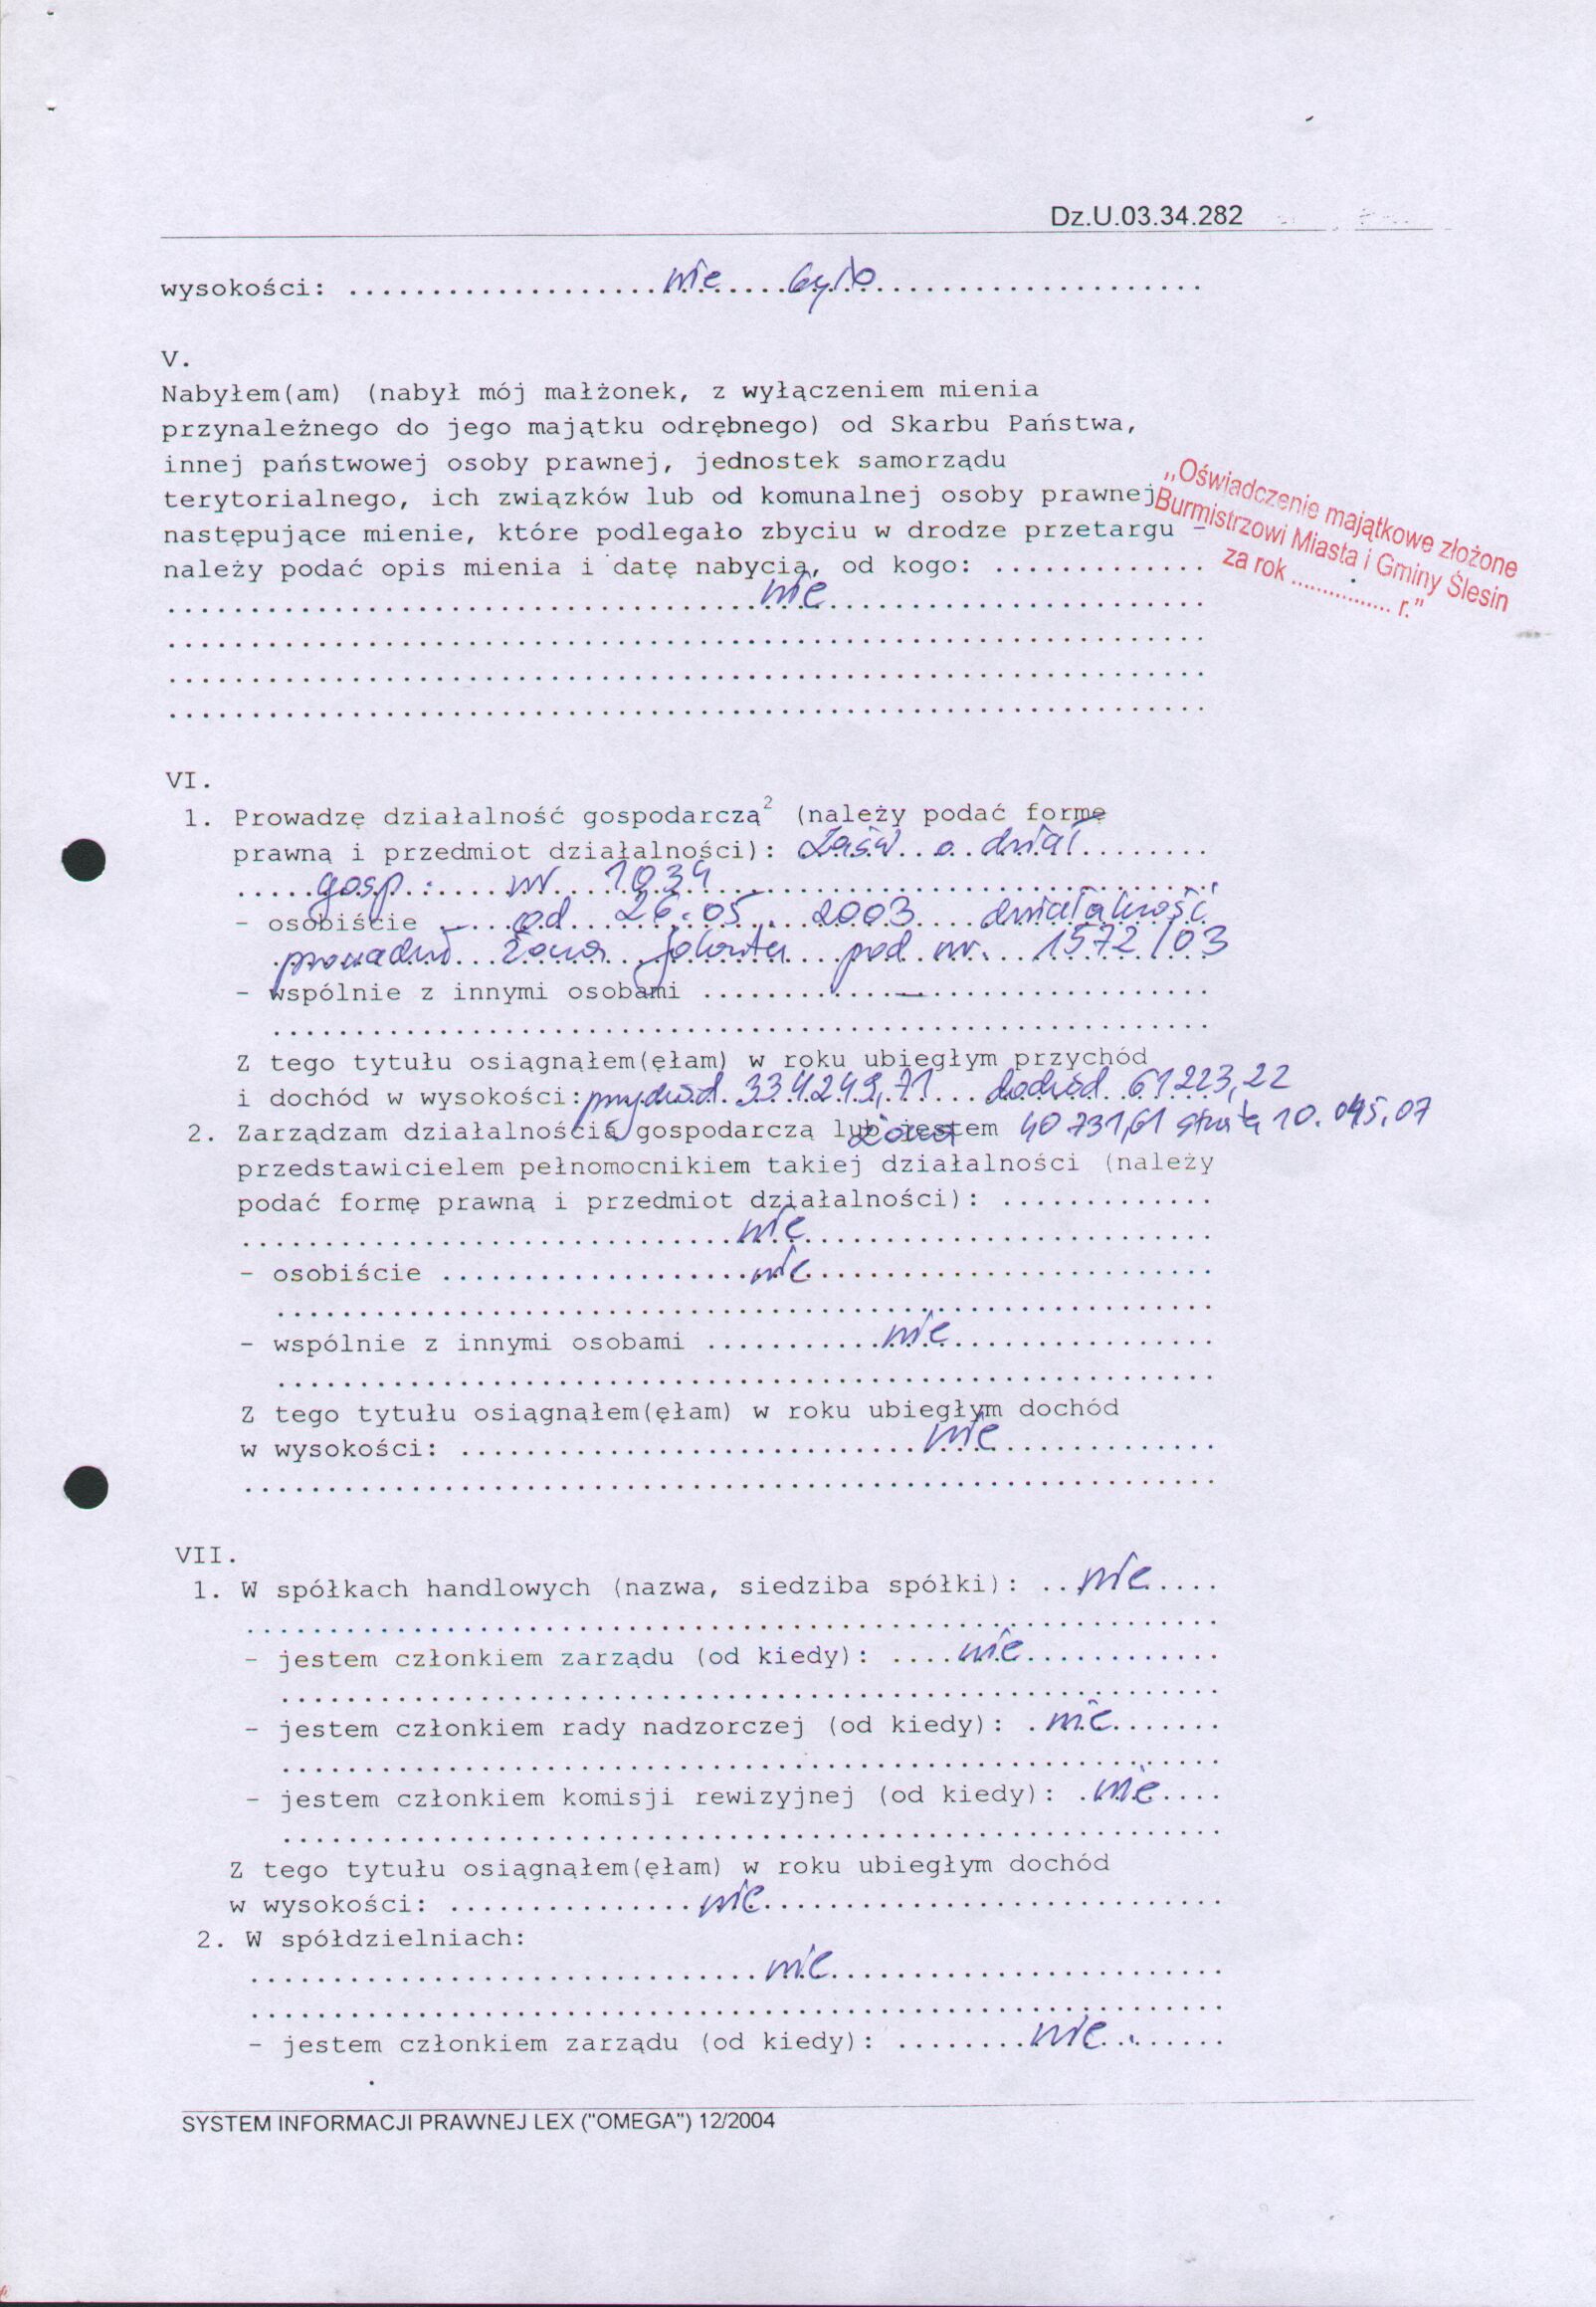 Dz.U.03.34.282
wysokości: ................... nie ..... było ....................
V.
Nabyłem(am) (nabył mój małżonek, z wyłączeniem mienia
przynależnego do jego majątku odrębnego) od Skarbu Państwa,
innej państwowej osoby prawnej, jednostek samorządu
terytorialnego, ich związków lub od komunalnej osoby prawnej
następujące mienie, które podlegało zbyciu w drodze przetargu -
należy podać opis mienia i datę nabycia, od kogo: .............
nie
„Oświadczenie majątkowe złożone
Burmistrzowi Miasta i Gminy Ślesin
za rok ................ r."
VI.
1. Prowadzę działalność gospodarczą² (należy podać formę
prawną i przedmiot działalności): Zaśw. o dział.
gosp.: nr 1034
- osobiście - od 26.05. 2003 działalność
prowadzi żona Jolanta pod nr. 1572/03
- wspólnie z innymi osobami ........ — ........
Z tego tytułu osiągnąłem(ęłam) w roku ubiegłym przychód
i dochód w wysokości: przychód 334249,71 dochód 61223,22
żona 40731,61 strata 10.045,07
2. Zarządzam działalnością gospodarczą lub jestem
przedstawicielem pełnomocnikiem takiej działalności (należy
podać formę prawną i przedmiot działalności): .............
nie
- osobiście ................... nie ....................
- wspólnie z innymi osobami ........... nie ................
Z tego tytułu osiągnąłem(ęłam) w roku ubiegłym dochód
w wysokości: ............................ nie .............
VII.
1. W spółkach handlowych (nazwa, siedziba spółki): .. nie ....
- jestem członkiem zarządu (od kiedy): .... nie ............
- jestem członkiem rady nadzorczej (od kiedy): . nie .......
- jestem członkiem komisji rewizyjnej (od kiedy): . nie ....
Z tego tytułu osiągnąłem(ęłam) w roku ubiegłym dochód
w wysokości: ............... nie ............................
2. W spółdzielniach:
nie
- jestem członkiem zarządu (od kiedy): ........ nie .......
SYSTEM INFORMACJI PRAWNEJ LEX ("OMEGA") 12/2004